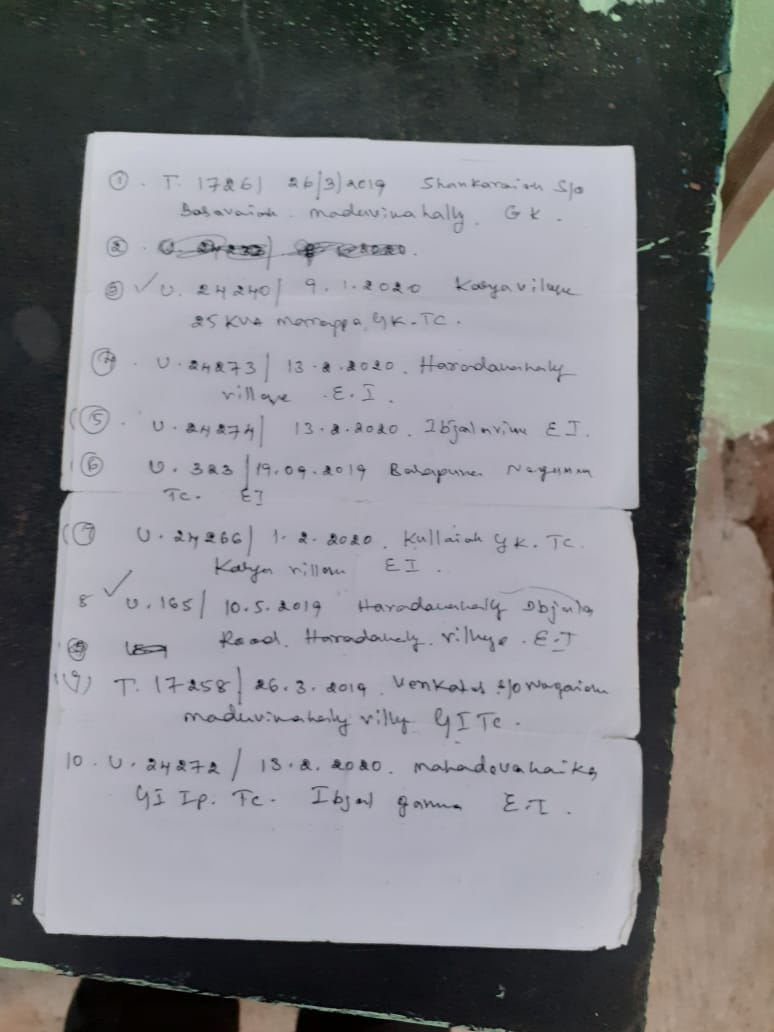 ① . T. 17261 26/3/2019 Shankaraiah S/o
Basavaiah . maduvinahally . GK .
②
③ ✓ U. 24240/ 9.1.2020 Kasya village
25 KVA marappa, GK. TC .
④ . U. 24273/ 13.2.2020 . Haradanahally
village . E.I .
(⑤ . U. 24274/ 13.2.2020 . Ibjala E I.
(⑥ U. 323 /19.09.2019
TC. EI
(⑦ U. 24266/ 1.2.2020 . Kullaiah GK. TC
Kasya village E I .
8 ✓ U. 165/ 10.5.2019 Haradanahally Ibjala
Road. Haradahally. village . E.I
(9) T. 17258/ 26.3.2019 . Venkatas S/o Nagaiah
maduvinahally villg GI TC .
10 . U. 24272 / 13.2.2020 . mahadevahaika
GI Ip. Tc. Ibjal gamma E.I .